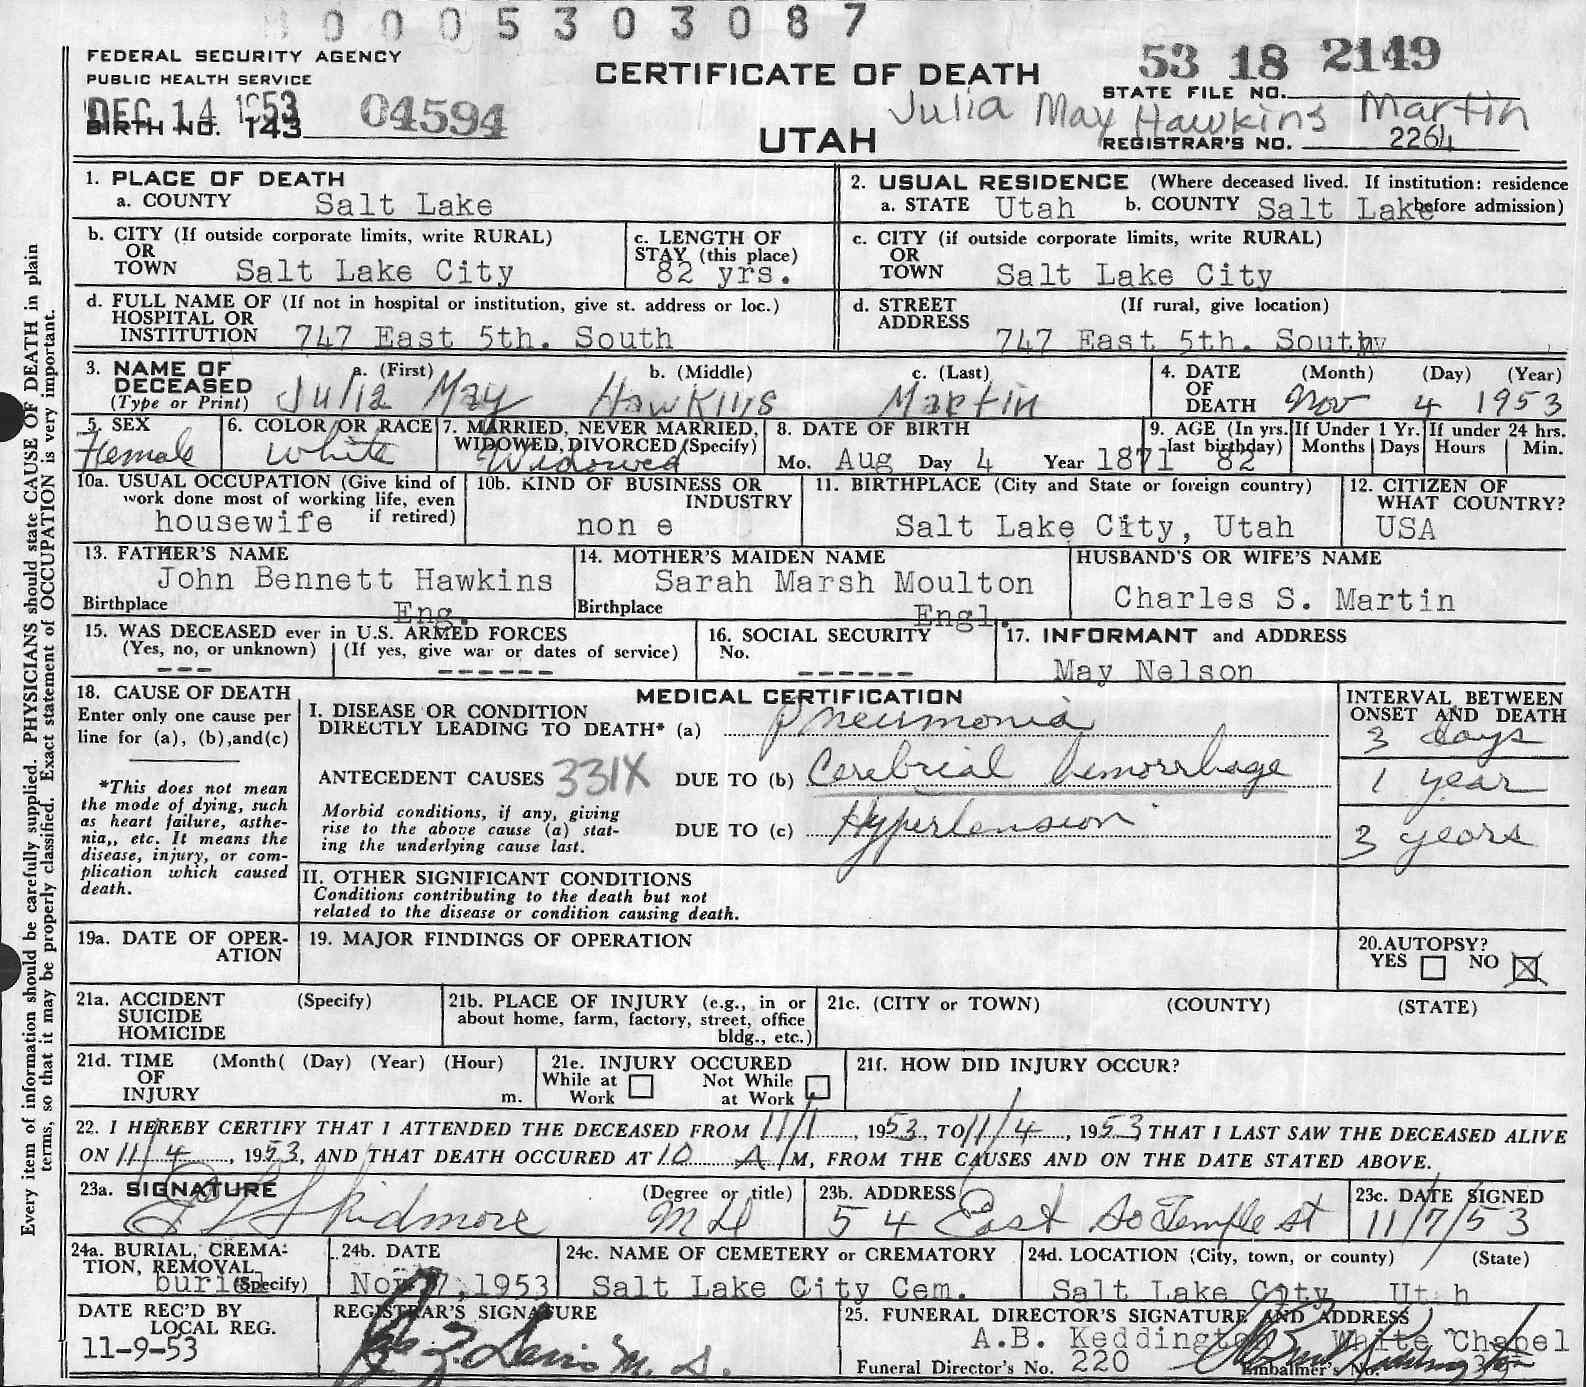 0005303087
FEDERAL SECURITY AGENCY
PUBLIC HEALTH SERVICE
DEC 14 1953
BIRTH NO. 143 04594
CERTIFICATE OF DEATH
UTAH
53 18 2149
STATE FILE NO.
Julia May Hawkins Martin
REGISTRAR'S NO. 2264
1. PLACE OF DEATH
a. COUNTY Salt Lake
2. USUAL RESIDENCE (Where deceased lived. If institution: residence before admission)
a. STATE Utah b. COUNTY Salt Lake
b. CITY (If outside corporate limits, write RURAL)
OR
TOWN Salt Lake City
c. LENGTH OF
STAY (this place)
82 yrs.
c. CITY (if outside corporate limits, write RURAL)
OR
TOWN Salt Lake City
d. FULL NAME OF (If not in hospital or institution, give st. address or loc.)
HOSPITAL OR
INSTITUTION 747 East 5th. South
d. STREET (If rural, give location)
ADDRESS 747 East 5th. South
3. NAME OF DECEASED (Type or Print)
a. (First) b. (Middle) c. (Last)
Julia May Hawkins Martin
4. DATE OF DEATH (Month) (Day) (Year)
Nov 4 1953
5. SEX
Female
6. COLOR OR RACE
White
7. MARRIED, NEVER MARRIED,
WIDOWED, DIVORCED (Specify)
Widowed
8. DATE OF BIRTH
Mo. Aug Day 4 Year 1871
9. AGE (In yrs. last birthday) 82
If Under 1 Yr. Months Days
If under 24 hrs. Hours Min.
10a. USUAL OCCUPATION (Give kind of
work done most of working life, even
if retired)
housewife
10b. KIND OF BUSINESS OR
INDUSTRY
non e
11. BIRTHPLACE (City and State or foreign country)
Salt Lake City, Utah
12. CITIZEN OF
WHAT COUNTRY?
USA
13. FATHER'S NAME
John Bennett Hawkins
Birthplace Eng.
14. MOTHER'S MAIDEN NAME
Sarah Marsh Moulton
Birthplace Engl.
HUSBAND'S OR WIFE'S NAME
Charles S. Martin
15. WAS DECEASED ever in U.S. ARMED FORCES
(Yes, no, or unknown) (If yes, give war or dates of service)
--- ------
16. SOCIAL SECURITY
No.
------
17. INFORMANT and ADDRESS
May Nelson
18. CAUSE OF DEATH
Enter only one cause per
line for (a), (b),and(c)
*This does not mean
the mode of dying, such
as heart failure, asthe-
nia,, etc. It means the
disease, injury, or com-
plication which caused
death.
MEDICAL CERTIFICATION
I. DISEASE OR CONDITION
DIRECTLY LEADING TO DEATH* (a) Pneumonia
ANTECEDENT CAUSES 331X DUE TO (b) Cerebrial hemorrhage
Morbid conditions, if any, giving
rise to the above cause (a) stat-
ing the underlying cause last.
DUE TO (c) Hypertension
INTERVAL BETWEEN
ONSET AND DEATH
3 days
1 year
3 years
II. OTHER SIGNIFICANT CONDITIONS
Conditions contributing to the death but not
related to the disease or condition causing death.
19a. DATE OF OPER-
ATION
19. MAJOR FINDINGS OF OPERATION
20.AUTOPSY?
YES NO X
21a. ACCIDENT (Specify)
SUICIDE
HOMICIDE
21b. PLACE OF INJURY (e.g., in or
about home, farm, factory, street, office
bldg., etc.)
21c. (CITY or TOWN) (COUNTY) (STATE)
21d. TIME (Month( (Day) (Year) (Hour)
OF
INJURY m.
21e. INJURY OCCURED
While at Work Not While at Work
21f. HOW DID INJURY OCCUR?
22. I HEREBY CERTIFY THAT I ATTENDED THE DECEASED FROM 11/1, 1953, TO 11/4, 1953 THAT I LAST SAW THE DECEASED ALIVE
ON 11/4, 1953, AND THAT DEATH OCCURED AT 10 A M, FROM THE CAUSES AND ON THE DATE STATED ABOVE.
23a. SIGNATURE (Degree or title)
Skidmore MD
23b. ADDRESS
54 East So Temple st
23c. DATE SIGNED
11/7/53
24a. BURIAL, CREMA-
TION, REMOVAL
(Specify)
burial
24b. DATE
Nov 7, 1953
24c. NAME OF CEMETERY or CREMATORY
Salt Lake City Cem.
24d. LOCATION (City, town, or county) (State)
Salt Lake City Utah
DATE REC'D BY
LOCAL REG.
11-9-53
REGISTRAR'S SIGNATURE
M.D.
25. FUNERAL DIRECTOR'S SIGNATURE AND ADDRESS
A.B. Keddington White Chapel
Funeral Director's No. 220 Embalmer's No.
Every item of information should be carefully supplied. PHYSICIANS should state CAUSE OF DEATH in plain
terms, so that it may be properly classified. Exact statement of OCCUPATION is very important.